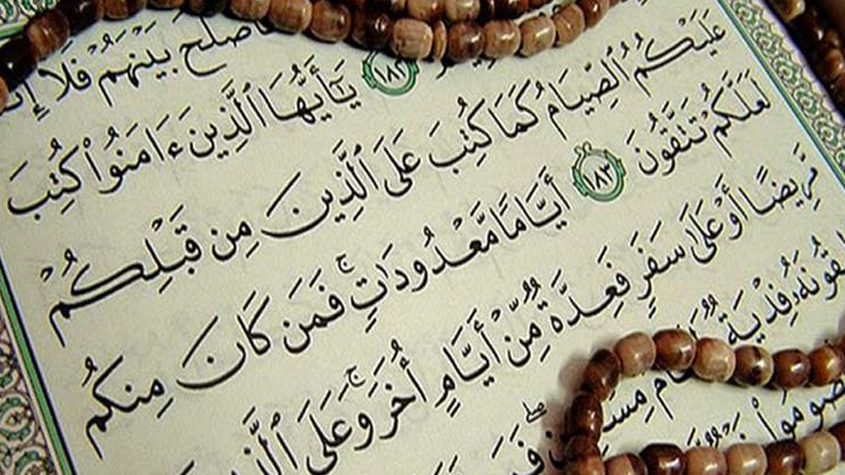 بَيْنَهُمْ فَلَآ
١٨٢ يَٰٓأَيُّهَا ٱلَّذِينَ ءَامَنُوا۟ كُتِبَ
عَلَيْكُمُ ٱلصِّيَامُ كَمَا كُتِبَ عَلَى ٱلَّذِينَ مِن قَبْلِكُمْ
لَعَلَّكُمْ تَتَّقُونَ ١٨٣ أَيَّامًا مَّعْدُودَٰتٍ ۚ فَمَن كَانَ مِنكُم
مَّرِيضًا أَوْ عَلَىٰ سَفَرٍ فَعِدَّةٌ مِّنْ أَيَّامٍ أُخَرَ ۚ وَعَلَى
فِدْيَةٌ